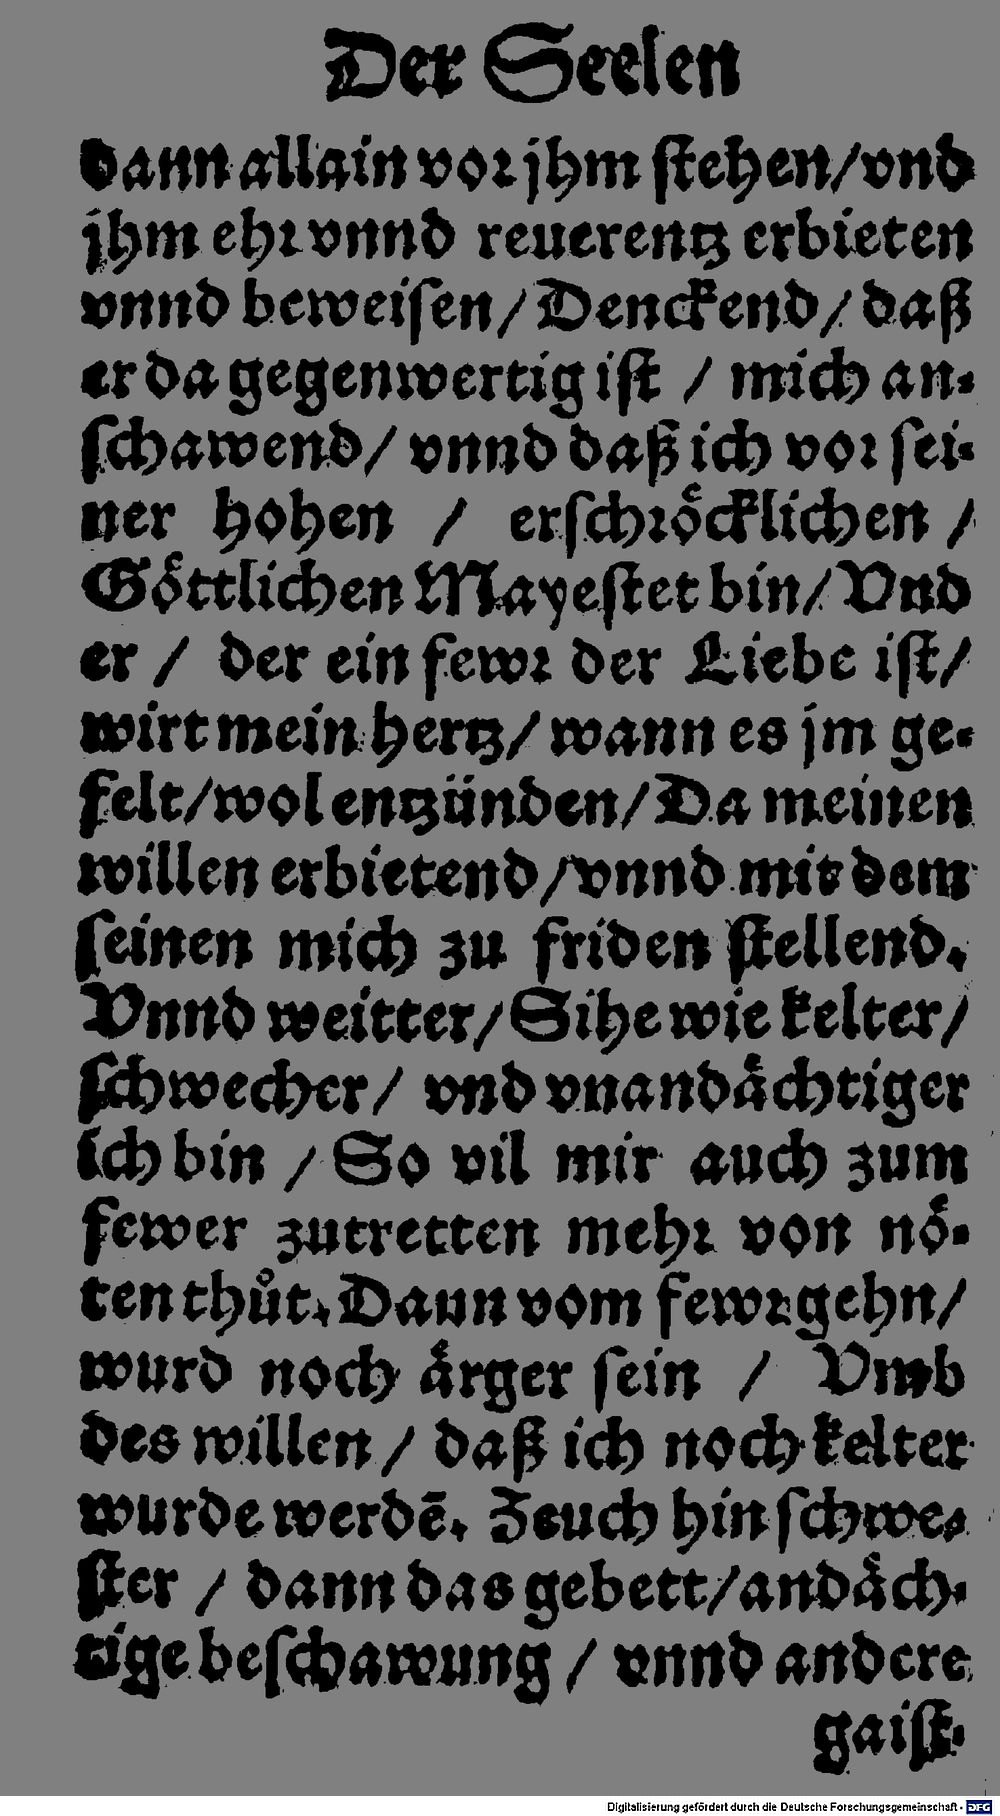 Der Seelen
dann allain vor jhm ſtehen/vnd
jhm ehr vnnd reuerentz erbieten
vnnd beweiſen/Denckend/daß
er da gegenwertig iſt / mich an⸗
ſchawend/ vnnd daß ich vor ſei⸗
ner hohen / erſchroͤcklichen /
Goͤttlichen Mayeſtet bin/Vnd
er / der ein fewr der Liebe iſt/
wirt mein hertz/wann es jm ge⸗
felt/wol entzünden/Da meinen
willen erbietend/vnnd mit dem
ſeinen mich zu friden ſtellend.
Vnnd weitter/Sihe wie kelter/
ſchwecher/ vnd vnandaͤchtiger
ich bin / So vil mir auch zum
fewer zutretten mehr von noͤ⸗
ten thůt. Dann vom fewr gehn/
wurd noch aͤrger ſein / Vmb
des willen / daß ich noch kelter
wurde werdē. Zeuch hin ſchwe⸗
ſter / dann das gebett/andaͤch⸗
tige beſchawung / vnnd andere
gaiſt⸗
Digitalisierung gefördert durch die Deutsche Forschungsgemeinschaft - DFG